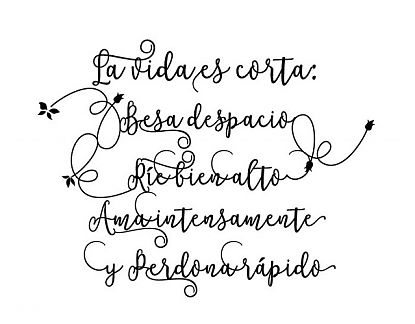 La vida es corta:
Besa despacio
Ríe bien alto
Ama intensamente
y Perdona rápido